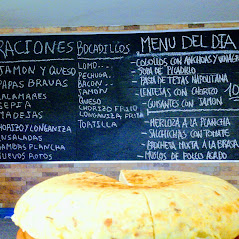 RACIONES
JAMON Y QUESO
PAPAS BRAVAS
CALAMARES
SEPIA
MADEJAS
CHORIZO/LONGANIZA
ENSALADAS
GAMBAS PLANCHA
HUEVOS ROTOS
BOCADILLOS
LOMO...
PECHUGA..
BACON...
JAMON
QUESO
CHORIZO FRITO
LONGANIZA FRITA
TORTILLA
MENU DEL DIA
- COGOLLOS CON ANCHOAS Y VINAGRE
- SOPA DE PICADILLO
- PASTA DE TETAS NAPOLITANA
- LENTEJAS CON CHORIZO
- GUISANTES CON JAMON
10
- MERLUZA A LA PLANCHA
- SALCHICHAS CON TOMATE
- BROCHETA MIXTA A LA BRASA
- MUSLOS DE POLLO ASADO